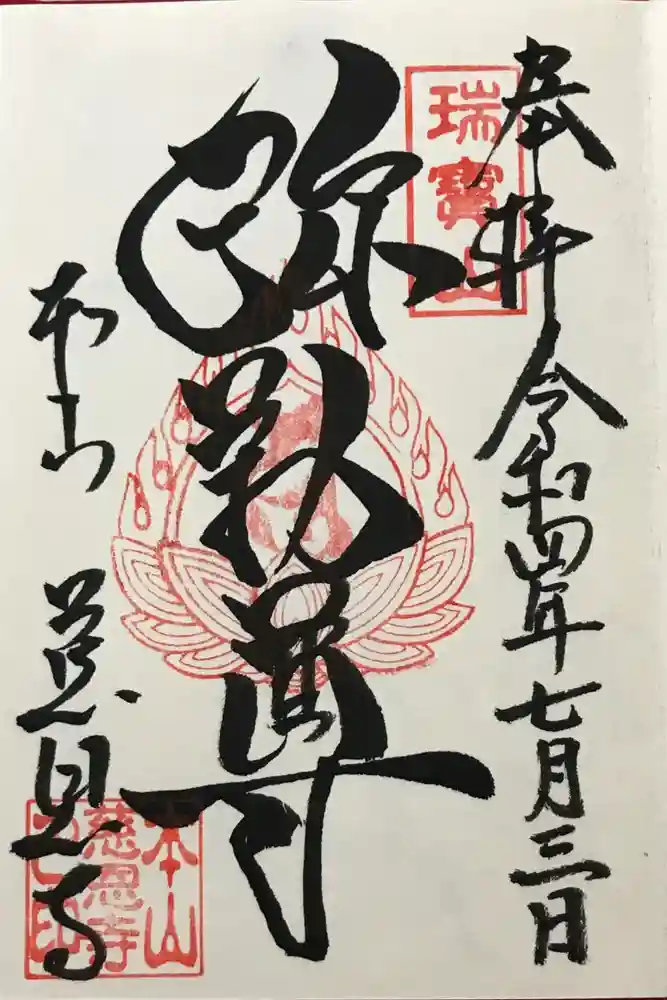 奉拝 令和四年七月三日
瑞寳山
弥勒尊
本山 慈恩寺
本山
慈恩寺
之印